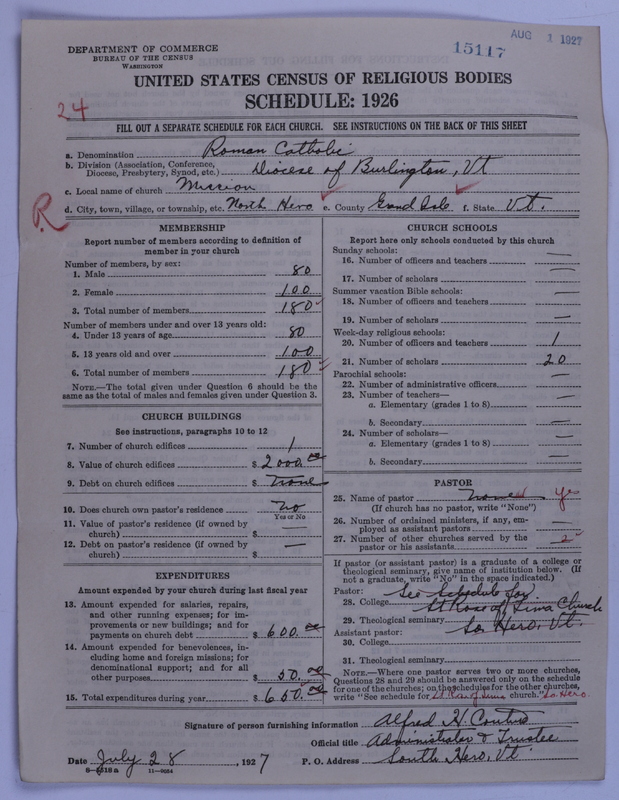 AUG 1 1927
15117
DEPARTMENT OF COMMERCE
BUREAU OF THE CENSUS
WASHINGTON
UNITED STATES CENSUS OF RELIGIOUS BODIES
SCHEDULE: 1926
24
FILL OUT A SEPARATE SCHEDULE FOR EACH CHURCH. SEE INSTRUCTIONS ON THE BACK OF THIS SHEET
a. Denomination Roman Catholic
b. Division (Association, Conference, Diocese, Presbytery, Synod, etc.) Diocese of Burlington, Vt
c. Local name of church Mission
R
d. City, town, village, or township, etc. North Hero e. County Grand Isle f. State Vt.
MEMBERSHIP
Report number of members according to definition of
member in your church
Number of members, by sex:
1. Male 80
2. Female 100
3. Total number of members 180
Number of members under and over 13 years old:
4. Under 13 years of age 80
5. 13 years old and over 100
6. Total number of members 180
NOTE.—The total given under Question 6 should be the
same as the total of males and females given under Question 3.
CHURCH BUILDINGS
See instructions, paragraphs 10 to 12
7. Number of church edifices 1
8. Value of church edifices $ 2000.00
9. Debt on church edifices $ none
10. Does church own pastor's residence No
Yes or No
11. Value of pastor's residence (if owned by
church) $ —
12. Debt on pastor's residence (if owned by
church) $ —
EXPENDITURES
Amount expended by your church during last fiscal year
13. Amount expended for salaries, repairs,
and other running expenses; for im-
provements or new buildings; and for
payments on church debt $ 600.00
14. Amount expended for benevolences, in-
cluding home and foreign missions; for
denominational support; and for all
other purposes $ 50.00
15. Total expenditures during year $ 650.00
CHURCH SCHOOLS
Report here only schools conducted by this church
Sunday schools:
16. Number of officers and teachers —
17. Number of scholars —
Summer vacation Bible schools:
18. Number of officers and teachers —
19. Number of scholars —
Week-day religious schools:
20. Number of officers and teachers 1
21. Number of scholars 20
Parochial schools:
22. Number of administrative officers —
23. Number of teachers—
a. Elementary (grades 1 to 8) —
b. Secondary —
24. Number of scholars—
a. Elementary (grades 1 to 8) —
b. Secondary —
PASTOR
25. Name of pastor none yes
(If church has no pastor, write "None")
26. Number of ordained ministers, if any, em-
ployed as assistant pastors —
27. Number of other churches served by the
pastor or his assistants 2
If pastor (or assistant pastor) is a graduate of a college or
theological seminary, give name of institution below. (If
not a graduate, write "No" in the space indicated.)
Pastor: See Schedule for
28. College St Rose of Lima Church
29. Theological seminary So Hero, Vt.
Assistant pastor:
30. College
31. Theological seminary
NOTE.—Where one pastor serves two or more churches,
Questions 28 and 29 should be answered only on the schedule
for one of the churches; on the schedules for the other churches,
write "See schedule for St Rose of Lima church." So Hero.
Signature of person furnishing information Alfred H.
Official title Administrator & Trustee
Date July 28, 1927 P. O. Address South Hero, Vt
8—6518 a 11—9684